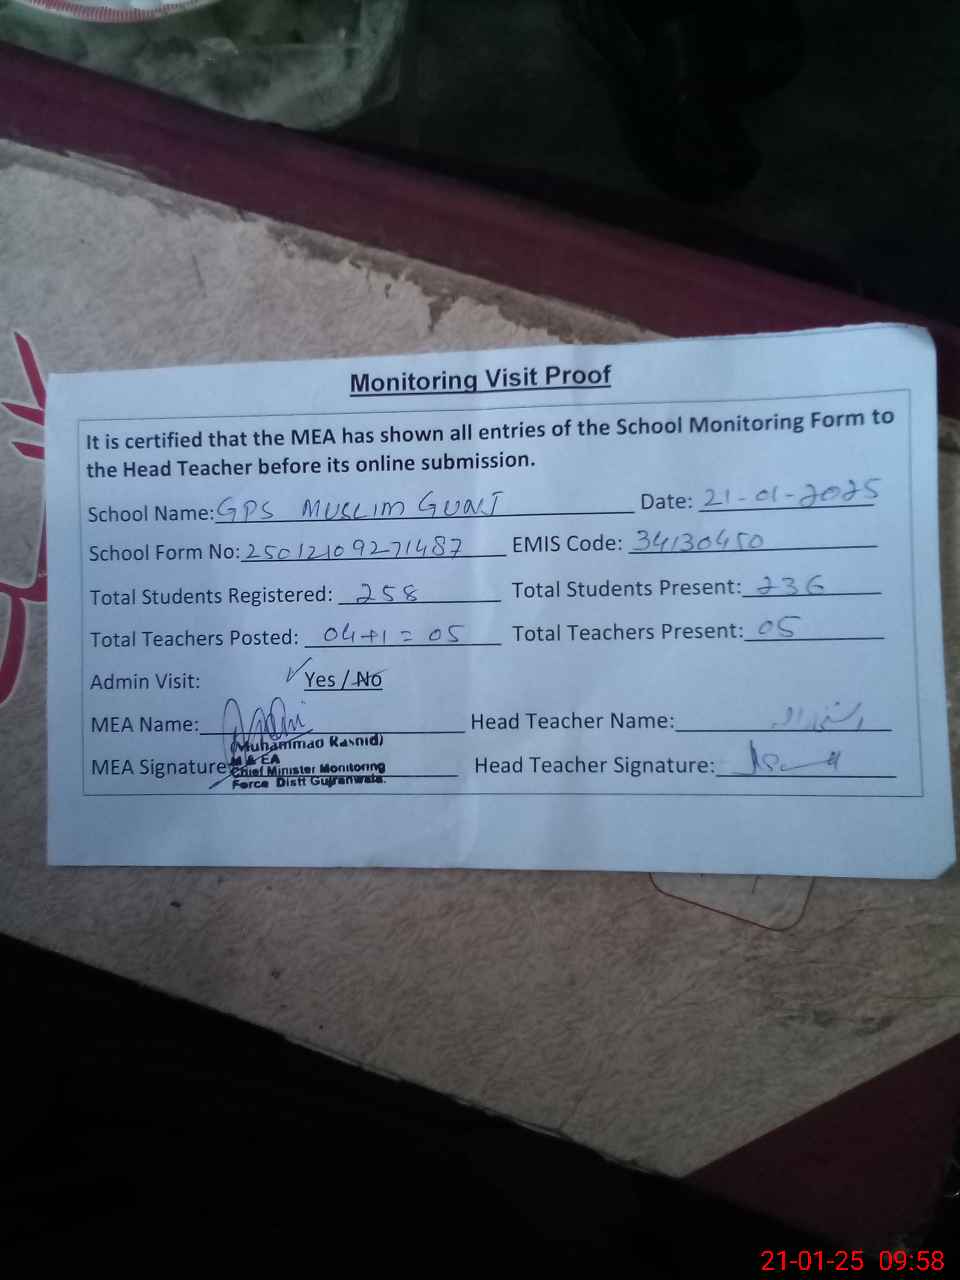 Monitoring Visit Proof
It is certified that the MEA has shown all entries of the School Monitoring Form to
the Head Teacher before its online submission.
School Name: GPS MUSLIM Date: 21-01-2025
School Form No: 25012109271487 EMIS Code: 34130450
Total Students Registered: 258 Total Students Present: 236
Total Teachers Posted: 04+1=05 Total Teachers Present: 05
Admin Visit: ✓ Yes / No
MEA Name: Head Teacher Name:
(Muhammad Rashid)
MEA Signature Head Teacher Signature:
M & EA
Chief Minister Monitoring
Force Distt Gujranwala.
21-01-25 09:58